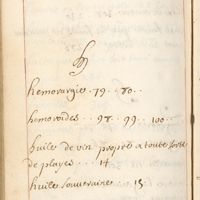 H
hemorargie . 79 . . 80 . .
hemoroides . . 98 . . 99 . . 100 . . .
huile de vin propre a toute sorte
de playes . . . 14
huile souueraine . . 15 .